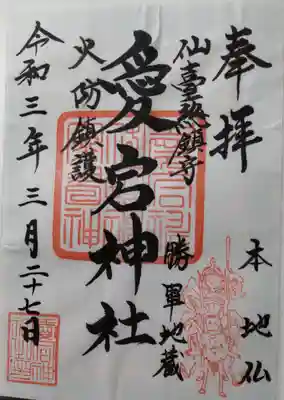 奉拝
本地仏
仙臺総鎮守
勝軍地蔵
愛宕神社
火防鎮護
令和三年三月二十七日